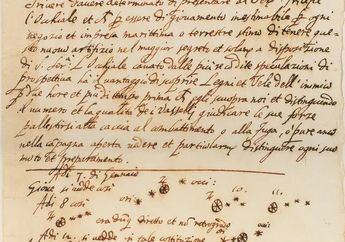 scrivere d'havere determinato di presentare al Ser. Principe
l'Occhiale et p essere di giovamento inestimabile p ogni
negozio et impresa marittima o terrestre stimo di tenere que
sto nuovo artifizio nel maggior segreto et solam. a disposizione
di V. Ser. L'Occhiale cavato dalle più recondite speculazioni di
prospettiva ha il vantaggio di scoprire Legni et Vele dell'inimico
p due hore et più di tempo prima ch'egli scuopra noi et distinguendo
il numero et la qualità de i Vasselli giudicare le sue forze
pallestirsi alla caccia al combattimento o alla fuga, o pure anco
nella capagna aperta vedere et particolarm. distinguere ogni suo
moto et preparamento.
Adi 7. di Gennaio
Giove si vedde così
Adi 8 così 10. 11.
era dūq diretto et nō retrogrado
Adi 12. si vedde in tale costituzione